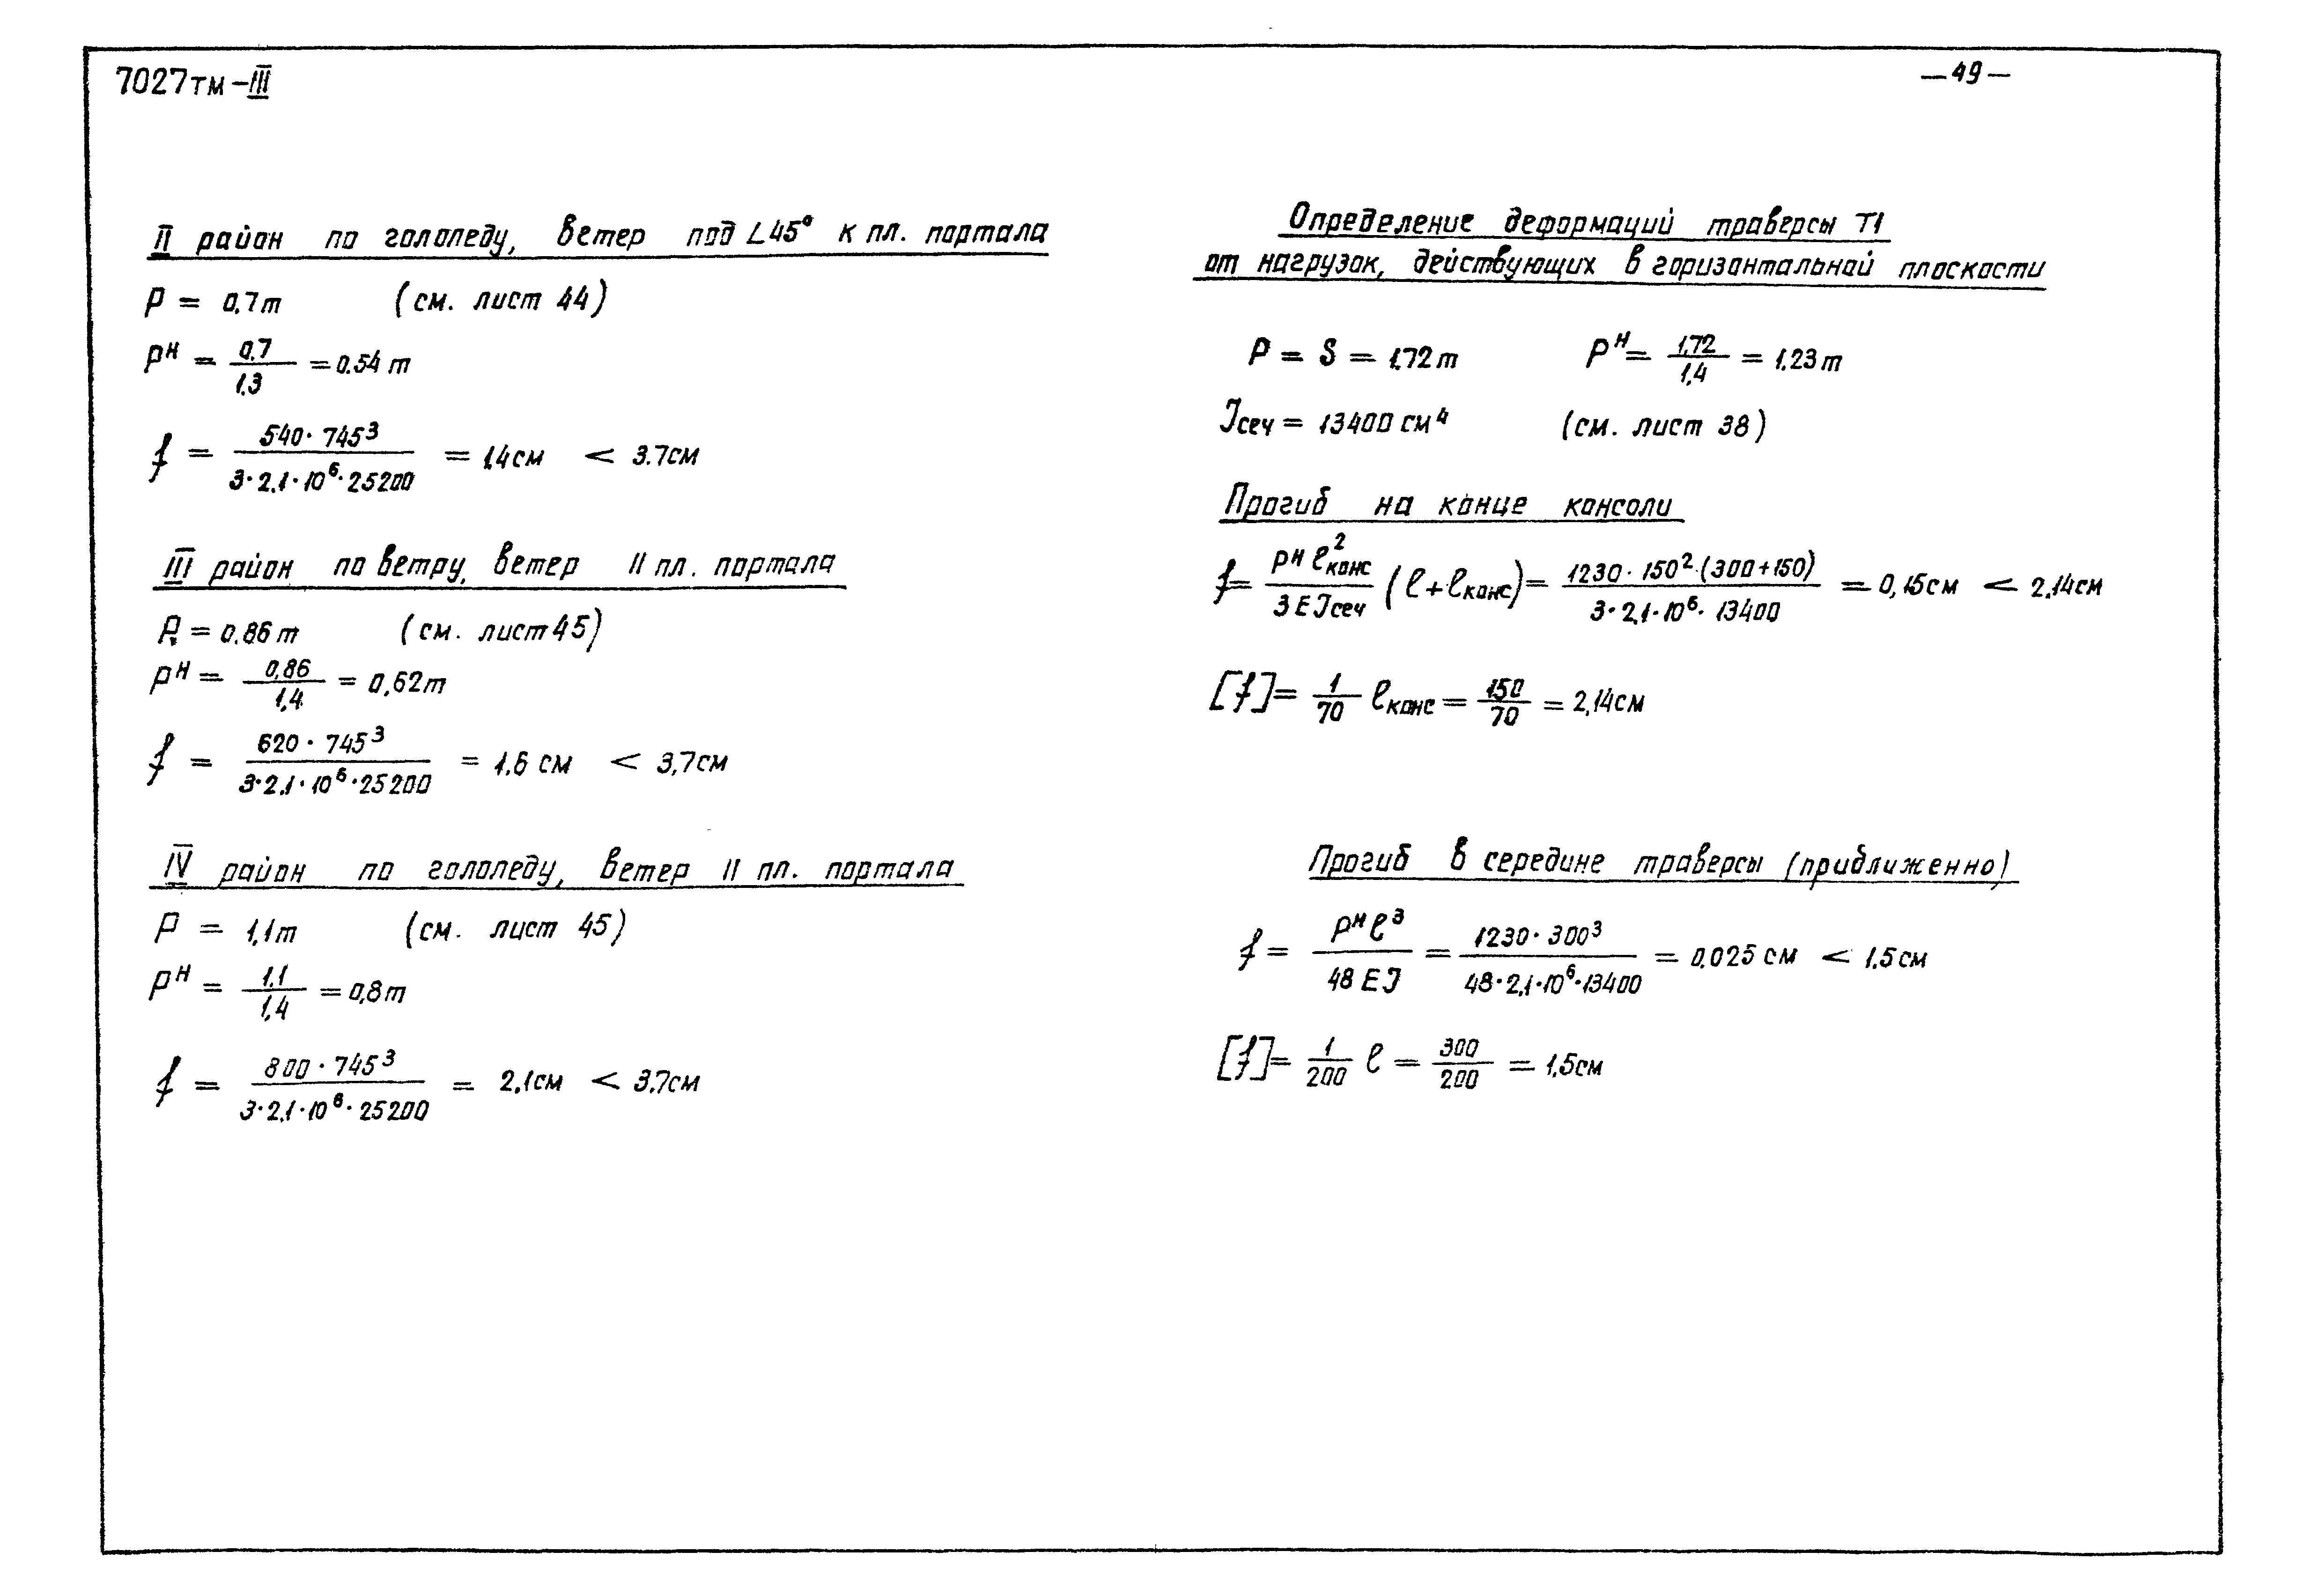 7027тм-III
-49-
II район по гололеду, ветер под ∠45° к пл. портала
P = 0.7т (см. лист 44)
Pᴴ = 0.7/1.3 = 0.54 т
f = 540·745³/3·2.1·10⁶·25200 = 1.4см < 3.7см
III район по ветру, ветер II пл. портала
P = 0.86т (см. лист 45)
Pᴴ = 0,86/1,4 = 0,62т
f = 620·745³/3·2.1·10⁶·25200 = 1.6 см < 3,7см
IV район по гололеду, ветер II пл. портала
P = 1,1т (см. лист 45)
Pᴴ = 1.1/1,4 = 0,8т
f = 800·745³/3·2.1·10⁶·25200 = 2.1см < 3.7см
Определение деформаций траверсы Т1
от нагрузок, действующих в горизонтальной плоскости
P = S = 1,72т Pᴴ = 1,72/1,4 = 1.23т
Jсеч = 13400 см⁴ (см. лист 38)
Прогиб на конце консоли
f = Pᴴ l²конс/3EJсеч (l + lконс) = 1230·150²·(300+150)/3·2,1·10⁶·13400 = 0,15см < 2.14см
[f] = 1/70 lконс = 150/70 = 2,14см
Прогиб в середине траверсы (приближенно)
f = Pᴴl³/48EJ = 1230·300³/48·2,1·10⁶·13400 = 0,025 см < 1.5см
[f] = 1/200 l = 300/200 = 1,5см